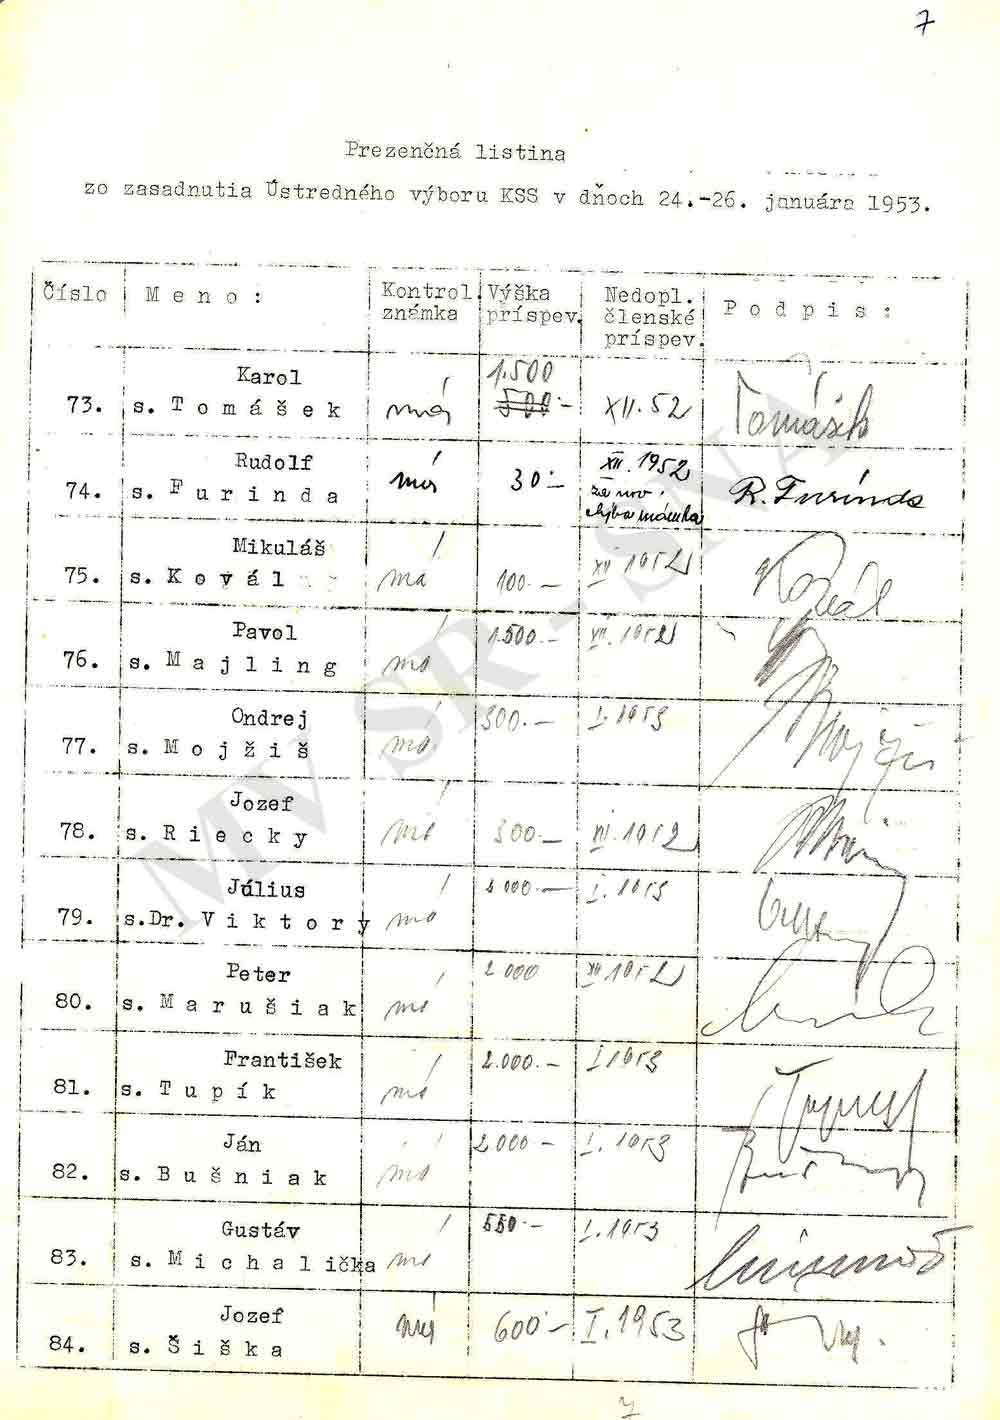 7
Prezenčná listina
zo zasadnutia Ústredného výboru KSS v dňoch 24.-26. januára 1953.
Číslo M e n o : Kontrol. známka Výška príspev. Nedopl. členské príspev. P o d p i s :
Karol 1.500
73. s. T o m á š e k má 500.- XII. 52 Tomášek
Rudolf XII. 1952
74. s. F u r i n d a má 30.- za nov. chýba známka R. Furinda
Mikuláš
75. s. K o v á l má 100.- XII 1952 Kovál
Pavol
76. s. M a j l i n g má 1.500.- XII. 1952
Ondrej
77. s. M o j ž i š má 300.- I. 1953 Mojžiš
Jozef
78. s. R i e c k y má 300.- 1952
Július
79. s.Dr. V i k t o r y má 2.000.- I. 1953
Peter
80. s. M a r u š i a k má 2.000 XII 1952
František
81. s. T u p í k má 2.000.- I 1953
Ján
82. s. B u š n i a k má 2.000.- I. 1953
Gustáv
83. s. M i c h a l i č k a má 550.- I. 1953
Jozef
84. s. Š i š k a má 600.- I. 1953
MV SR - SNA